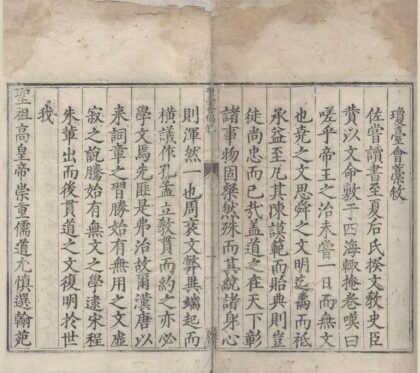 瓊臺會藁敘
佐嘗讀書至夏后氏揆文敎史臣
賛以文命敷于四海輙掩卷嘆曰
嗟乎帝王之治未嘗一日而無文
也堯之文思舜之文明迄禹而祗
承益至凡其陳謨範而貽典則豈
徒尚忠而已哉葢道之在天下彰
諸事物固犖然殊而其統諸身心
則渾然一也周衰文弊異端起而
橫議作孔孟立敎貫而約之亦必
學文焉光匪是弗治故爾漢唐以
来詞章之習勝始有無用之文虛
寂之說騰始有無文之學逮宋程
朱軰出而後貫道之文復明於世
我
聖祖高皇帝崇重儒道尤慎選翰苑